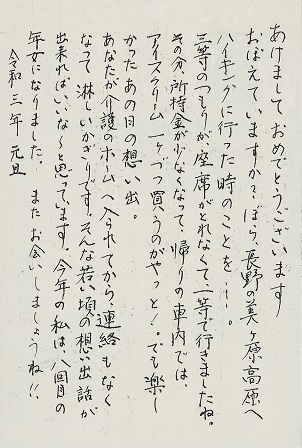 あけまして おめでとうございます
おぼえていますか？ほら、長野の美ヶ原高原へ
ハイキングに行った時のことを…。
三等のつもりが、座席がとれなくて、一等で行きましたね。
その分、所持金が少なくなって、帰りの車内では、
アイスクリーム一ヶづつ買うのがやっと！。でも楽し
かったあの日の想い出。
あなたが介護のホームへ入られてから、連絡もなく
なって 淋しいかぎりです。そんな若い頃の想い出話が
出来ればいいな〜と思っています。今年の私は、八回目の
年女になりました。 またお会いしましょうね!!
令和三年 元旦